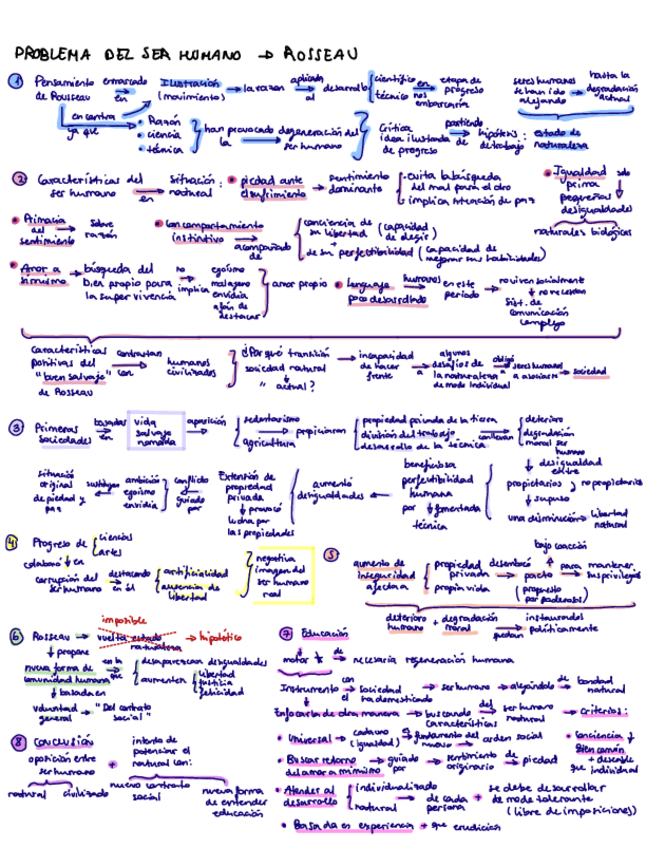 PROBLEMA DEL SER HUMANO → ROSSEAU
1 Pensamiento de Rousseau enmarcado en Ilustración (movimiento) → la razón aplicada al desarrollo científico técnico en nos embarcaría etapa de progreso
seres humanos se han ido alejando hasta la degradación actual
en contra ya que
• Razón
• ciencia
• técnica
han provocado la degeneración del ser humano
Crítica idea ilustrada de progreso partiendo de hipótesis de trabajo: estado de naturaleza
2 Características del ser humano en situación natural:
• piedad ante el sufrimiento → sentimiento dominante
- evita la búsqueda del mal para el otro
- implica situación de paz
• Igualdad prima solo pequeñas desigualdades naturales biológicas
• Primacía del sentimiento sobre razón
• Con comportamiento instintivo acompañado de
conciencia de su libertad (capacidad de elegir)
de su perfectibilidad (capacidad de mejorar sus habilidades)
• Amor a sí mismo → búsqueda del bien propio para la supervivencia no implica
egoísmo
mala gana
envidia
afán de destacar
amor propio
• Lenguaje poco desarrollado humanos en este período → no viven socialmente
↓ no necesitan
sist. de comunicación complejo
Características positivas del "buen salvaje" de Rosseau contrastan con humanos civilizados
¿Por qué transición sociedad natural → " actual?
incapacidad de hacer frente a algunos desafíos de la naturaleza de modo individual obligó a seres humanos a asociarse → sociedad
3 Primeras sociedades basadas en vida salvaje nómada aparición
sedentarismo
agricultura
propiciaron
propiedad privada de la tierra
división del trabajo
desarrollo de la técnica
conllevan
deterioro
degradación moral ser humano
↓ desigualdad entre
propietarios y no propietarios
↓ supuso
una disminución → libertad natural
beneficiosa perfectibilidad humana por ↓ fomentada técnica
aumento desigualdades
Extensión de propiedad privada
↓ provocó
lucha por las propiedades
conflicto guiado por
ambición
egoísmo
envidia
sustituyen
situación original de piedad y paz
4 Progreso de
ciencias
artes
colaboró ↓ en
corrupción del ser humano destacando en él
artificialidad
ausencia de libertad
negativa imagen del ser humano real
5 aumento de inseguridad afectaría
propiedad privada
propia vida
desembocó → pacto
bajo coacción
(propuesto por poderosos)
para mantener sus privilegios
deterioro humano + degradación moral quedan instaurados políticamente
6 Rosseau → vuelta estado naturaleza → hipotético
imposible
↓ propone
nueva forma de comunidad humana en la que
desaparezcan desigualdades
aumenten
libertad
justicia
felicidad
↓ basada en
voluntad general → "Del contrato social"
7 Educación
motor de → necesaria regeneración humana
Instrumento con → sociedad ha domesticado → ser humano → alejándolo de bondad natural
Enfocarla de otra manera → buscando características del ser humano natural → criterios:
• Universal → cada uno (igualdad) → fundamento del nuevo → orden social
• Conciencia
Bien común + deseable que individual
• Buscar retorno del amor a mí mismo → guiado por → sentimiento originario de → piedad
• Atender al desarrollo
individualizado
natural
de cada persona + se debe desarrollar de modo tolerante (libre de imposiciones)
• Basada en experiencia + que erudición
8 CONCLUSIÓN
oposición entre ser humano
natural civilizado
+
intento de potenciar el natural con:
nuevo contrato social
nueva forma de entender educación